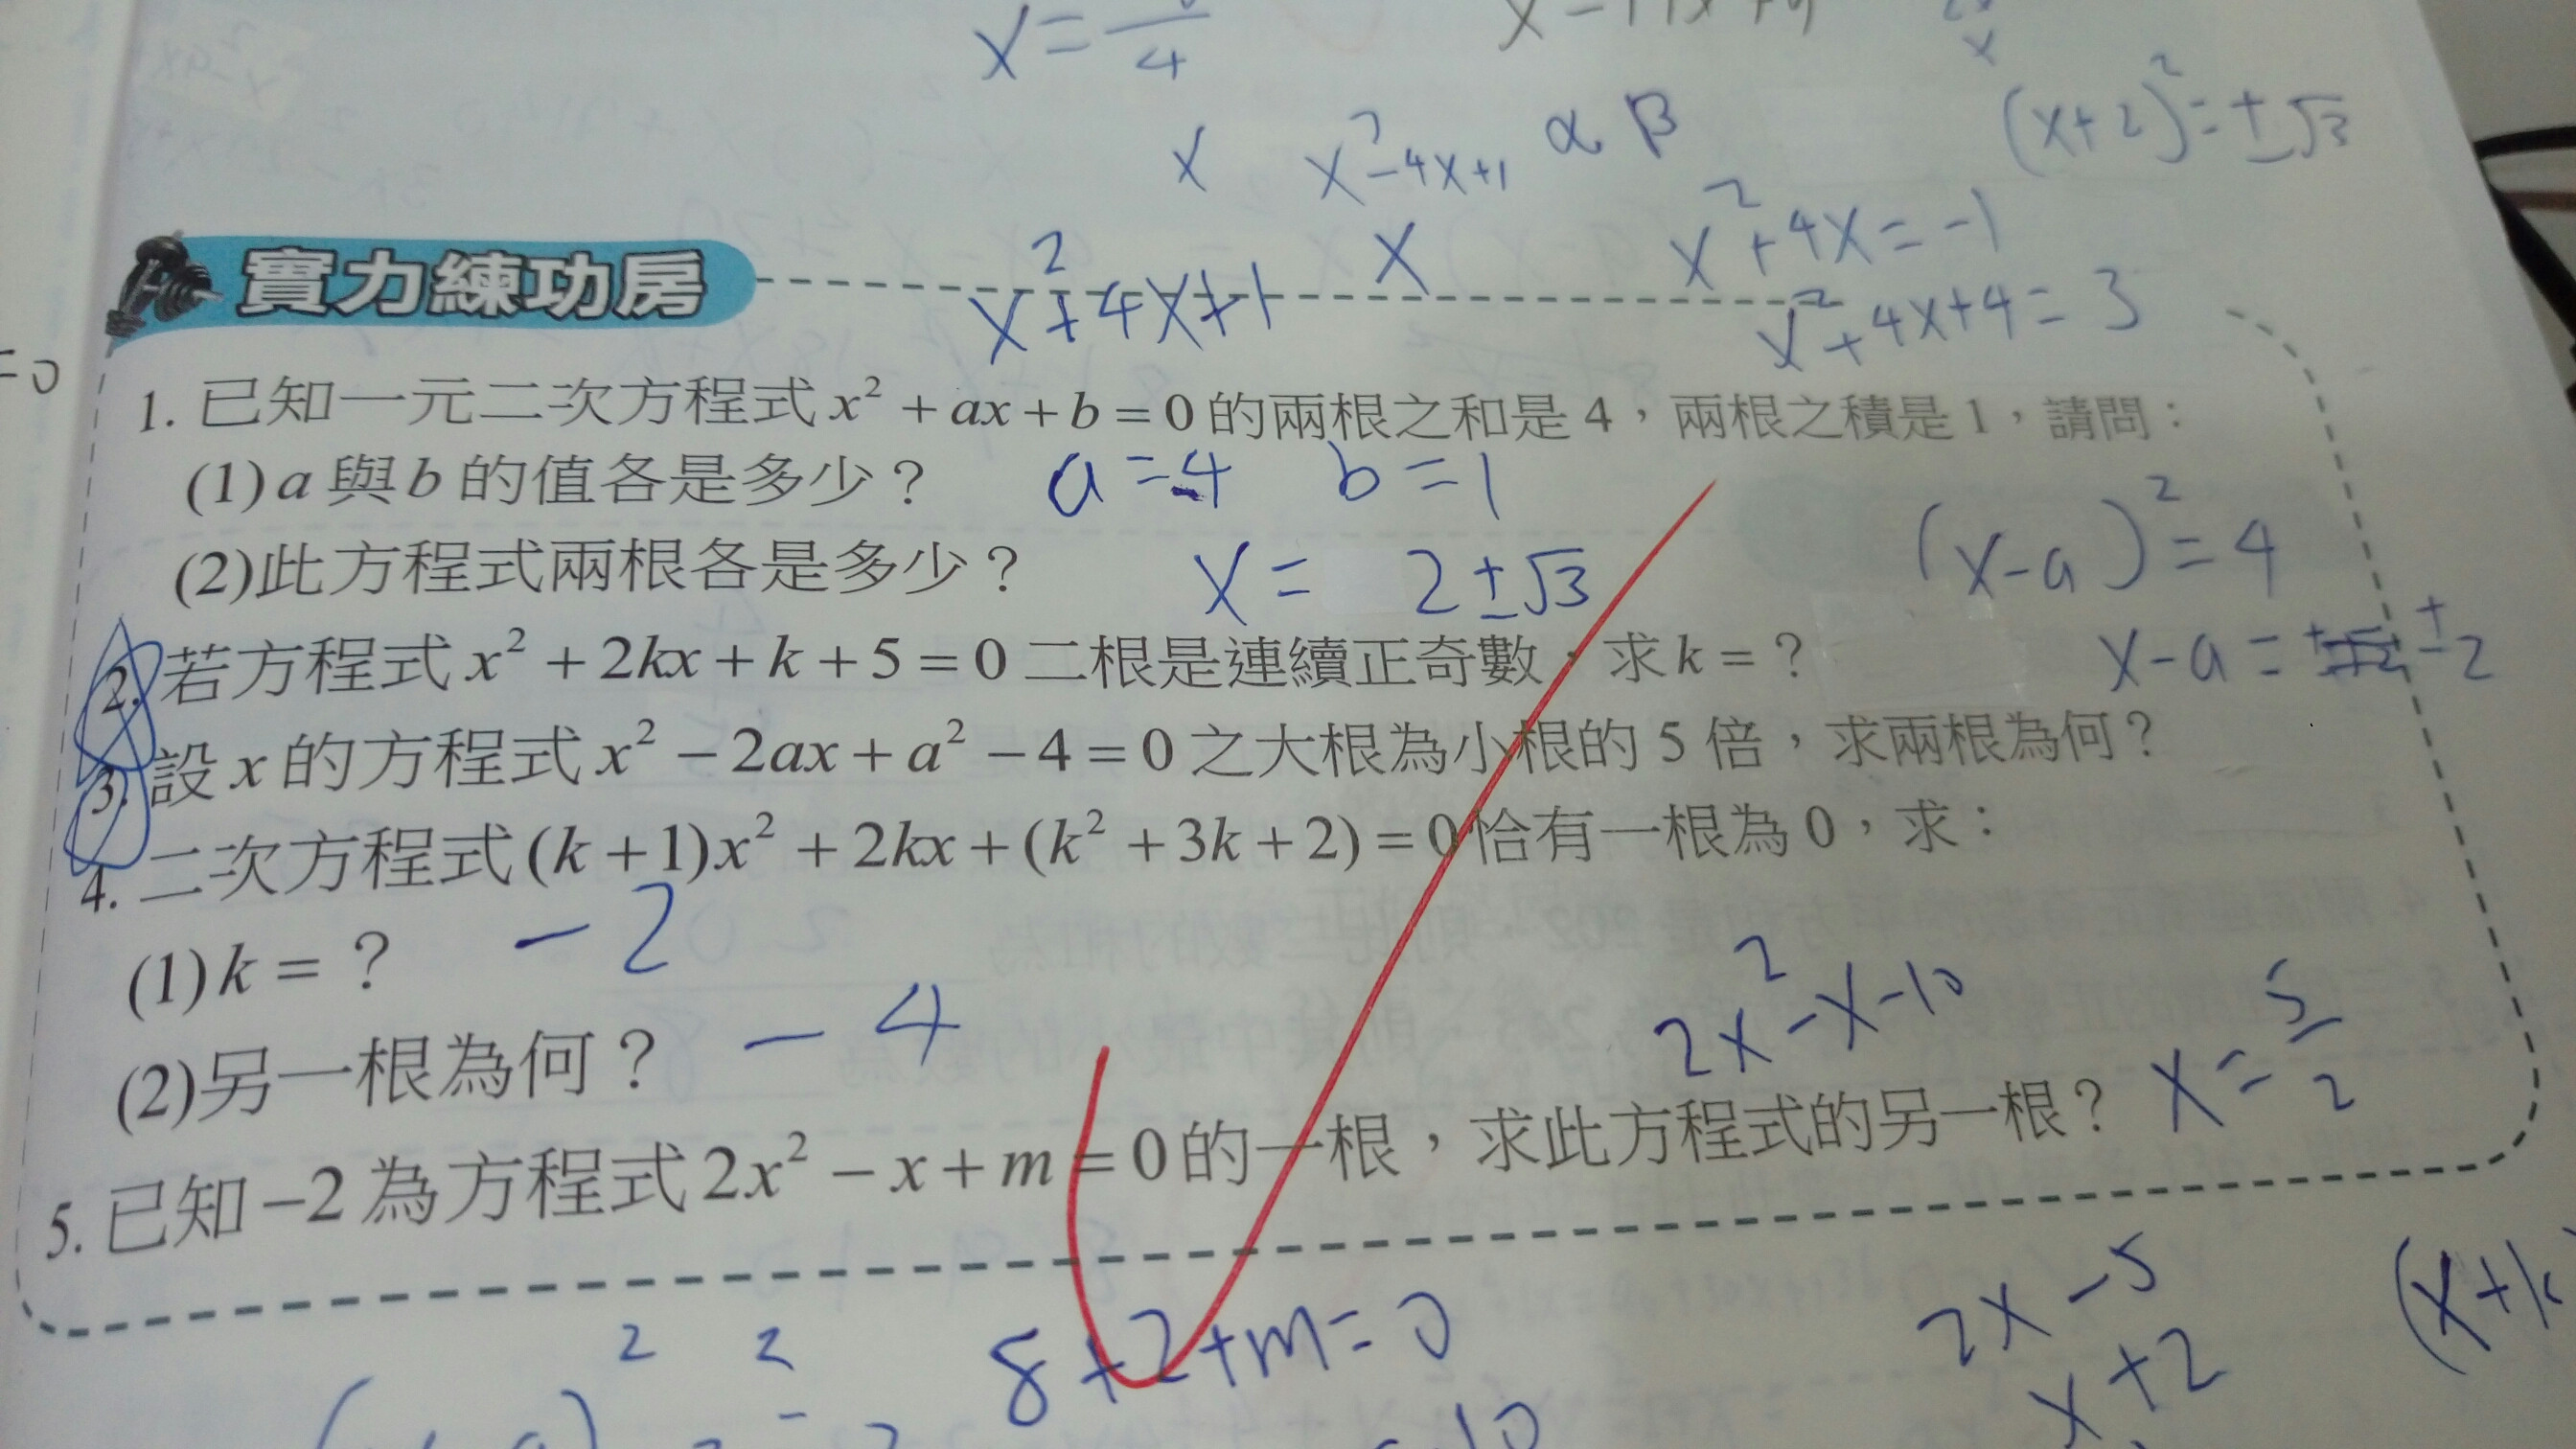 x = 4
α β
(x+2)² = ±√3
x
x²-4x+1
x²+4x=-1
實力練功房
x²+4x+1
x
x²+4x+4=3
=0
1. 已知一元二次方程式 x² + ax + b = 0 的兩根之和是 4，兩根之積是 1，請問：
(1) a 與 b 的值各是多少？ a=-4 b=1
(x-a)²=4
(2)此方程式兩根各是多少？ x= 2±√3
2. 若方程式 x² + 2kx + k + 5 = 0 二根是連續正奇數，求 k = ？
x-a= ±2
3. 設 x 的方程式 x² − 2ax + a² − 4 = 0 之大根為小根的 5 倍，求兩根為何？
4. 二次方程式 (k+1)x² + 2kx + (k² + 3k + 2) = 0 恰有一根為 0，求：
(1) k = ？ -2
(2)另一根為何？ -4
2x²-x-10
5. 已知 −2 為方程式 2x² − x + m = 0 的一根，求此方程式的另一根？ x=5/2
8+2+m=0
2x-5
x+2
(x+k